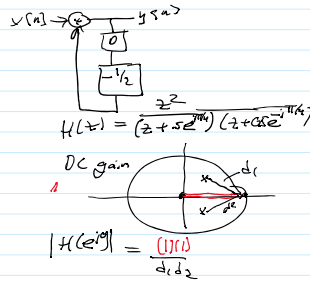 x[n] → + y[n]
D
-1/2
H(z) = z² / (z + .5e^{jπ/4}) (z + .5e^{-jπ/4})
DC gain
d₁
d₂
|H(e^{jθ})| = (1)(1) / d₁d₂